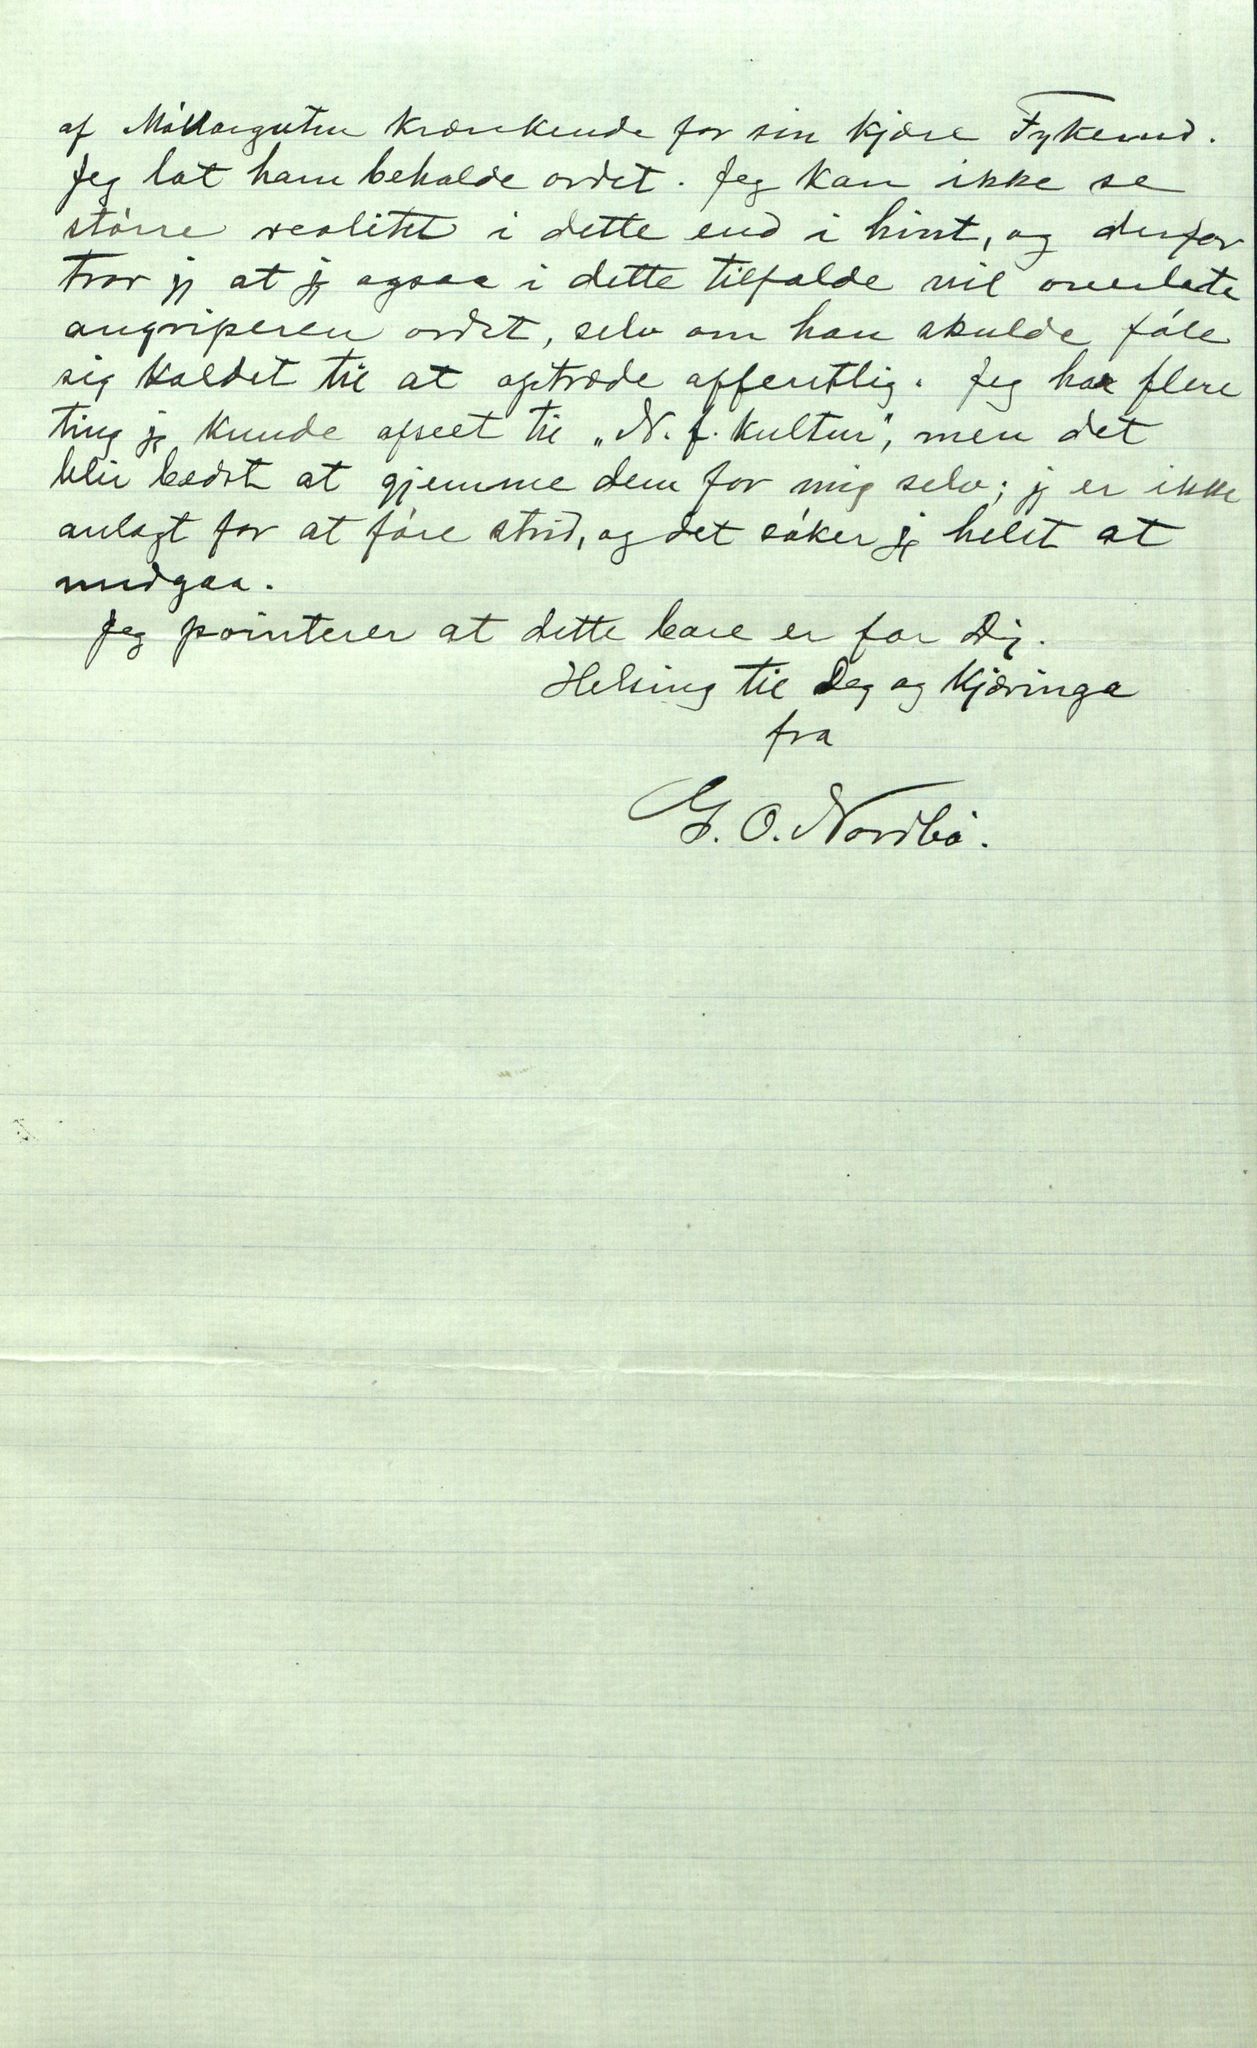 af Möllargutten krænkende for sin kjære Fykerud.
Jeg lot ham beholde ordet. Jeg kan ikke se
större realitet i dette end i hint, og derfor
tror jeg at jeg ogsaa i dette tilfælde vil overlate
angriperen ordet, selv om han skulde föle
sig kaldet til at optræde offentlig. Jeg har flere
ting jeg kunde afseet til „N. f. Kultur”, men det
blir bedst at gjemme dem for mig selv; jeg er ikke
anlagt for at före strid, og det söker jeg helst at
undgaa.
Jeg pointerer at dette bare er for Dig.
Helsing til Deg og Kjæringa
fra
G. O. Nordbö.